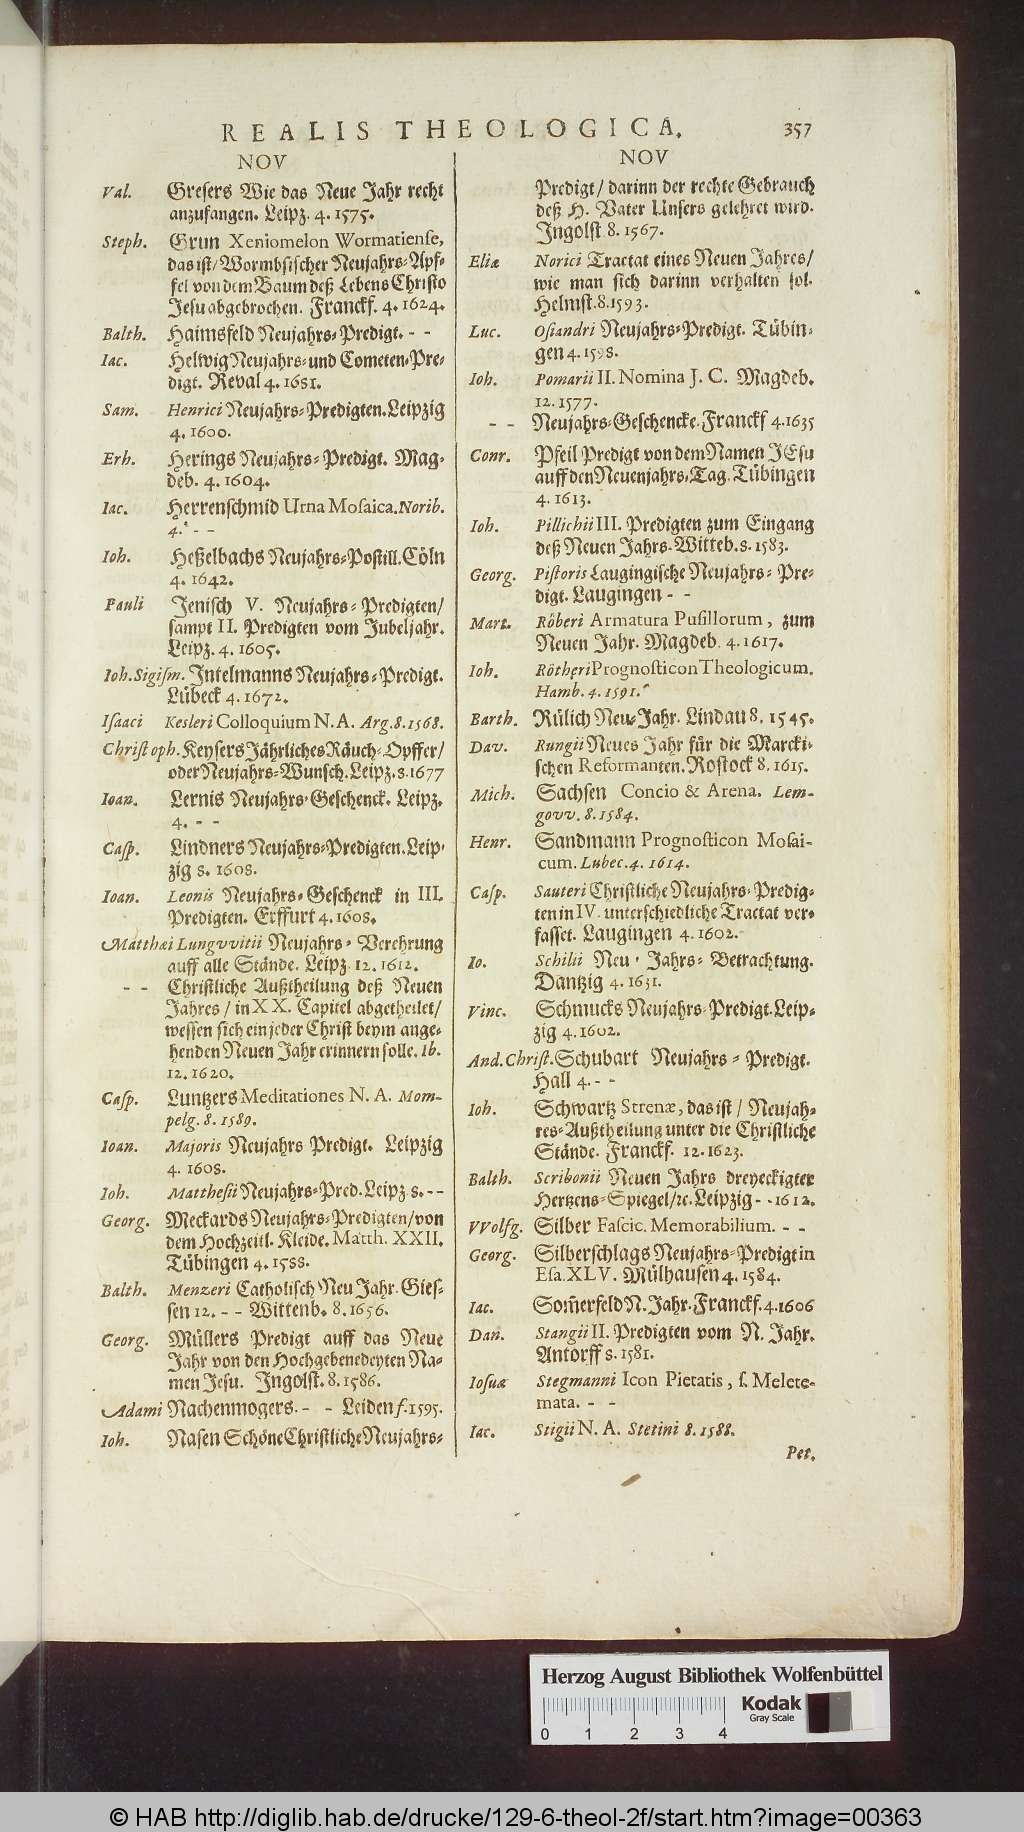 REALIS THEOLOGICA. 357
NOV
Val. Gresers Wie das Neue Jahr recht
anzufangen. Leipz. 4. 1575.
Steph. Grun Xeniomelon Wormatiense,
das ist / Wormbsischer Neujahrs-Apf-
fel von dem Baum deß Lebens Christo
Jesu abgebrochen. Franckf. 4. 1624.
Balth. Haimsfeld Neujahrs-Predigt. - -
Iac. Helwig Neujahrs- und Cometen-Pre-
digt. Reval 4. 1681.
Sam. Henrici Neujahrs-Predigten. Leipzig
4. 1600.
Erh. Herings Neujahrs-Predigt. Mag-
deb. 4. 1604.
Iac. Herrenschmid Urna Mosaica. Norib.
4. - -
Ioh. Heßelbachs Neujahrs-Postill. Cöln
4. 1642.
Pauli Jenisch V. Neujahrs-Predigten /
sampt II. Predigten vom Jubeljahr.
Leipz. 4. 1605.
Ioh. Sigism. Intelmanns Neujahrs-Predigt.
Lübeck 4. 1672.
Isaaci Kesleri Colloquium N. A. Arg. 8. 1568.
Christoph. Keysers Jährliches Räuch-Opffer /
oder Neujahrs-Wunsch. Leipz. 8. 1677
Ioan. Lernis Neujahrs-Geschenck. Leipz.
4. - -
Casp. Lindners Neujahrs-Predigten. Leip-
zig 8. 1608.
Ioan. Leonis Neujahrs-Geschenck in III.
Predigten. Erffurt 4. 1608.
Matthæi Lungvvitii Neujahrs-Verehrung
auff alle Stände. Leipz. 12. 1612.
- - Christliche Außtheilung deß Neuen
Jahres / in XX. Capitel abgetheilet /
wessen sich ein jeder Christ beym ange-
henden Neuen Jahr erinnern solle. Ib.
12. 1620.
Casp. Luntzers Meditationes N. A. Mom-
pelg. 8. 1589.
Ioan. Majoris Neujahrs Predigt. Leipzig
4. 1608.
Ioh. Matthesii Neujahrs-Pred. Leipz 8. - -
Georg. Meckards Neujahrs-Predigten / von
dem Hochzeitl. Kleide. Matth. XXII.
Tübingen 4. 1588.
Balth. Menzeri Catholisch Neu Jahr. Gies-
sen 12. - - Wittenb. 8. 1656.
Georg. Müllers Predigt auff das Neue
Jahr von den Hochgebenedeyten Na-
men Jesu. Ingolst. 8. 1586.
Adami Nachenmogers. - - Leiden f. 1595.
Ioh. Nasen Schöne Christliche Neujahrs-
NOV
Predigt / darinn der rechte Gebrauch
deß H. Vater Unsers gelehret wird.
Ingolst 8. 1567.
Eliæ Norici Tractat eines Neuen Jahres /
wie man sich darinn verhalten sol.
Helmst. 8. 1593.
Luc. Osiandri Neujahrs-Predigt. Tübin-
gen 4. 1598.
Ioh. Pomarii II. Nomina J. C. Magdeb.
12. 1577.
- - Neujahrs-Geschencke. Franckf 4. 1635
Conr. Pfeil Predigt von dem Namen JEsu
auff den Neuenjahrs-Tag. Tübingen
4. 1613.
Ioh. Pillichii III. Predigten zum Eingang
deß Neuen Jahrs. Witteb. 8. 1583.
Georg. Pistoris Laugingische Neujahrs-Pre-
digt. Laugingen - -
Mart. Röberi Armatura Pusillorum, zum
Neuen Jahr. Magdeb. 4. 1617.
Ioh. Rötheri Prognosticon Theologicum.
Hamb. 4. 1591.
Barth. Rülich Neu-Jahr. Lindau 8. 1545.
Dav. Rungii Neues Jahr für die Marcki-
schen Reformanten. Rostock 8. 1615.
Mich. Sachsen Concio & Arena. Lem-
govv. 8. 1584.
Henr. Sandmann Prognosticon Mosai-
cum. Lubec. 4. 1614.
Casp. Sauteri Christliche Neujahrs-Predig-
ten in IV. unterschiedliche Tractat ver-
fasset. Laugingen 4. 1602.
Io. Schilii Neu-Jahrs-Betrachtung.
Dantzig 4. 1631.
Vinc. Schmucks Neujahrs-Predigt. Leip-
zig 4. 1602.
And. Christ. Schubart Neujahrs-Predigt.
Hall 4. - -
Ioh. Schwartz Strenæ, das ist / Neujah-
res-Außtheilung unter die Christliche
Stände. Franckf. 12. 1623.
Balth. Scribonii Neuen Jahrs dreyeckigter
Hertzens-Spiegel / ꝛc. Leipzig - - 1612.
VVolfg. Silber Fascic. Memorabilium. - -
Georg. Silberschlags Neujahrs-Predigt in
Esa. XLV. Mülhausen 4. 1584.
Iac. Som̃erfeld N. Jahr. Franckf. 4. 1606
Dan. Stangii II. Predigten vom N. Jahr.
Antorff 8. 1581.
Iosuæ Stegmanni Icon Pietatis, s. Melete-
mata. - -
Iac. Stigii N. A. Stetini 8. 1588.
Pet.
Herzog August Bibliothek Wolfenbüttel
Kodak
Gray Scale
0 1 2 3 4
© HAB http://diglib.hab.de/drucke/129-6-theol-2f/start.htm?image=00363